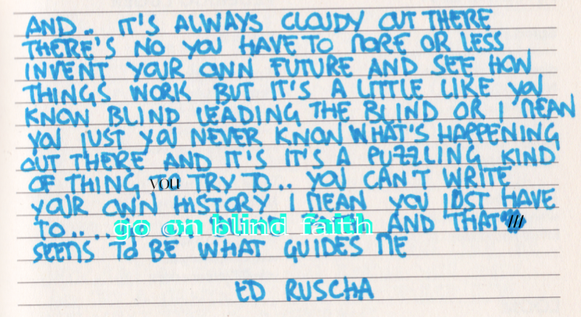 AND.. IT'S ALWAYS CLOUDY OUT THERE
THERE'S NO YOU HAVE TO MORE OR LESS
INVENT YOUR OWN FUTURE AND SEE HOW
THINGS WORK BUT IT'S A LITTLE LIKE YOU
KNOW BLIND LEADING THE BLIND OR I MEAN
YOU JUST YOU NEVER KNOW WHAT'S HAPPENING
OUT THERE AND IT'S IT'S A PUZZLING KIND
OF THING you TRY TO.. YOU CAN'T WRITE
YOUR OWN HISTORY I MEAN YOU JUST HAVE
TO.... go on blind faith AND THAT
SEEMS TO BE WHAT GUIDES ME
ED RUSCHA